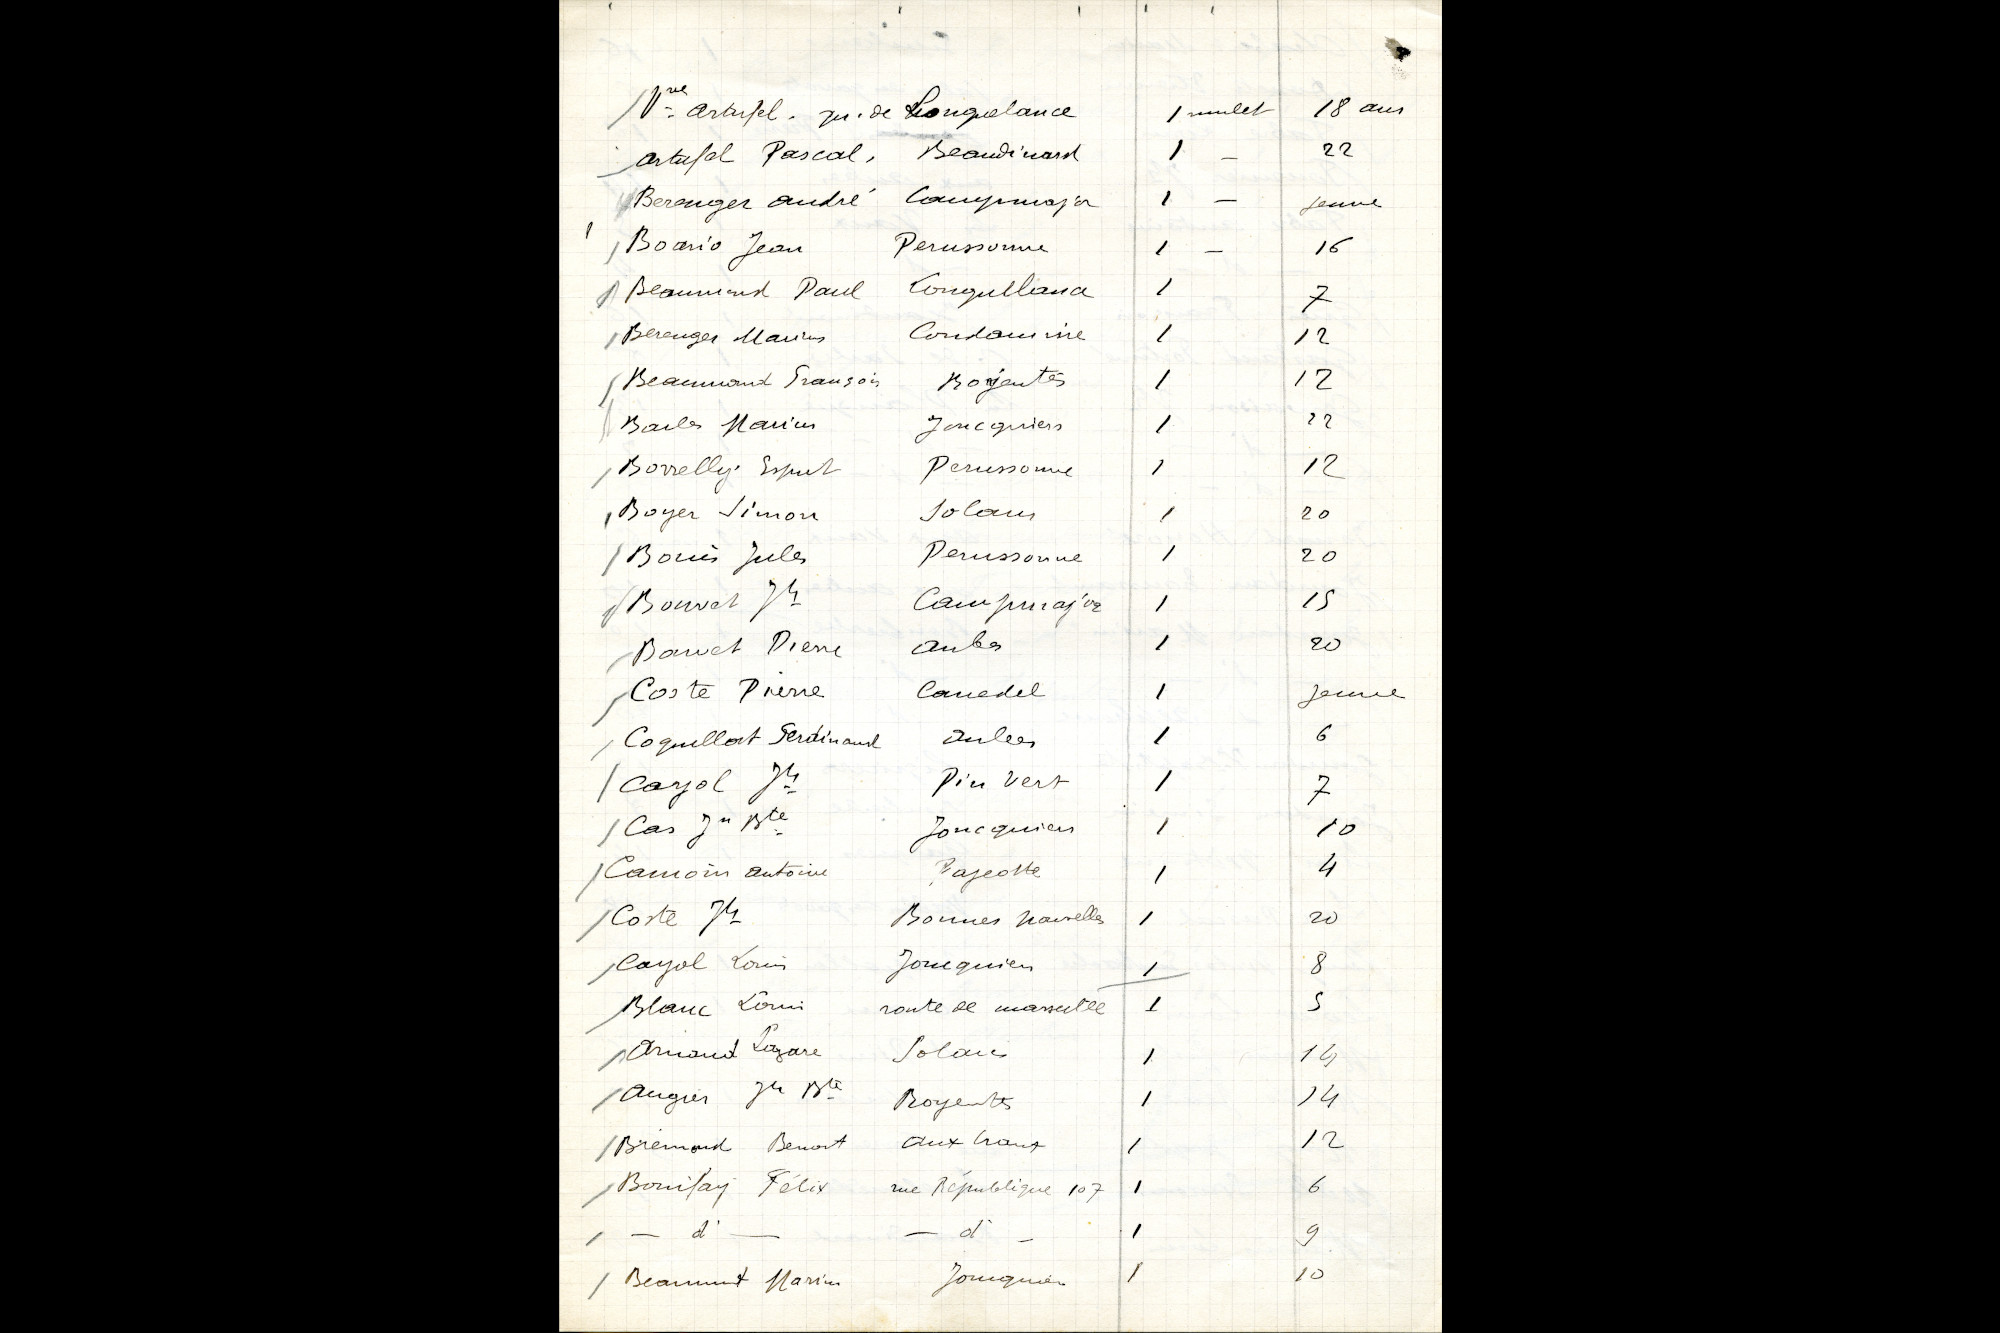 Vve Artufel. qu. de Longuelance 1 mulet 18 ans
Artufel Pascal, Beaudinard 1 — 22
Berenger André Campmajor 1 — jeune
Boario Jean Perussonne 1 — 16
Beaumond Paul 1 7
Berenger Marius Condamine 1 12
Beaumond François 1 12
Barles Marius Joucquiers 1 22
Borrelly Esprit Perussonne 1 12
Boyer Simon Solans 1 20
Bouis Jules Perussonne 1 20
Bouvet Jh Campmajor 1 15
Barvet Pierre Aubes 1 20
Coste Pierre Canedel 1 jeune
Coquillat Ferdinand Aubes 1 6
Cayol Jh Pin Vert 1 7
Cas Jn Bte Joucquiers 1 10
Camoin Antoine Pageotte 1 4
Coste Jh Bonnes Nouvelles 1 20
Cayol Louis Jouquiers 1 8
Blanc Louis route de marseille 1 5
Arnaud Lazare Solans 1 14
Augier Jn Bte Royentes 1 14
Brémond Benoit aux Craux 1 12
Bonifay Félix rue République 107 1 6
— d° — — d° — 1 9
Beaumont Marius Jouquiers 1 10